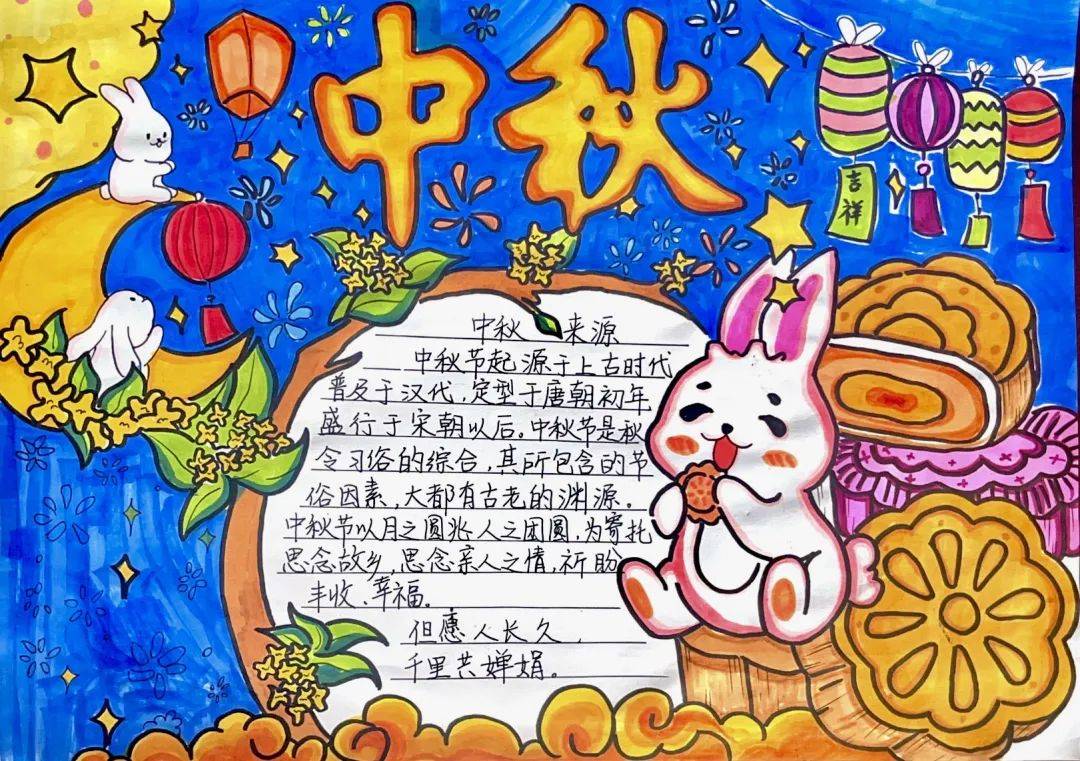 中秋
吉祥
中秋 来源
中秋节起源于上古时代
普及于汉代，定型于唐朝初年
盛行于宋朝以后。中秋节是秋
令习俗的综合，其所包含的节
俗因素，大都有古老的渊源。
中秋节以月之圆兆人之团圆，为寄托
思念故乡，思念亲人之情，祈盼
丰收、幸福。
但愿人长久，
千里共婵娟。